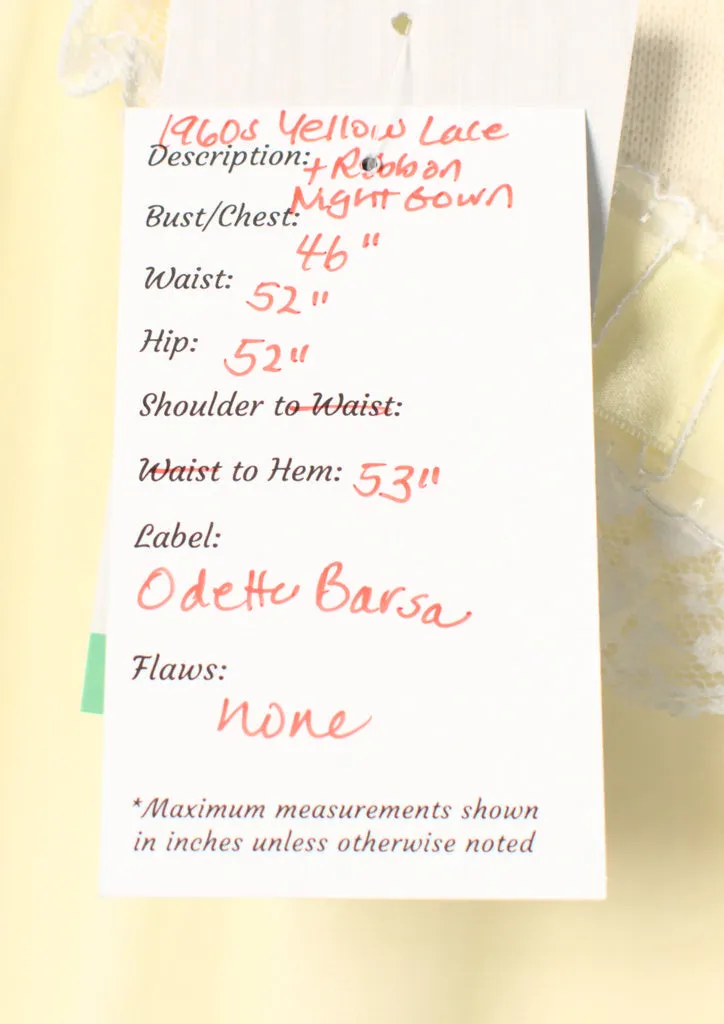 1960s Yellow Lace
Description: + Ribbon
Night Gown
Bust/Chest:
46"
Waist: 52"
Hip: 52"
Shoulder to Waist:
Waist to Hem: 53"
Label:
Odette Barsa
Flaws:
none
*Maximum measurements shown
in inches unless otherwise noted